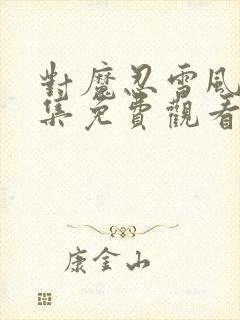 對魔忍雪風
集免費觀看
康金山